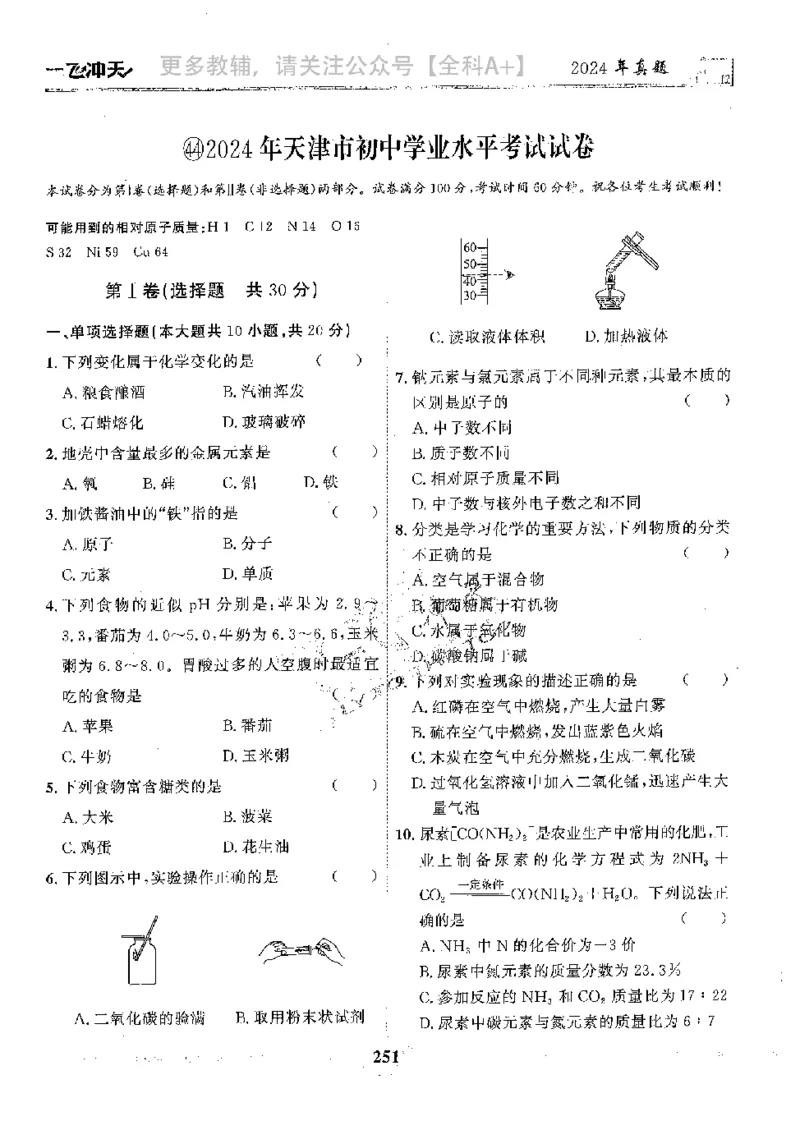 一飞冲天 更多教辅，请关注公众号【全科A+】 2024 年真题
㊹2024 年天津市初中学业水平考试试卷
本试卷分为第Ⅰ卷(选择题)和第Ⅱ卷(非选择题)两部分。试卷满分 100 分,考试时间 60 分钟。祝各位考生考试顺利!
可能用到的相对原子质量:H 1 C 12 N 14 O 16
S 32 Ni 59 Cu 64
第Ⅰ卷(选择题 共 30 分)
一、单项选择题(本大题共 10 小题,共 20 分)
1. 下列变化属于化学变化的是 ( )
A. 粮食酿酒 B. 汽油挥发
C. 石蜡熔化 D. 玻璃破碎
2. 地壳中含量最多的金属元素是 ( )
A. 氧 B. 硅 C. 铝 D. 铁
3. 加铁酱油中的“铁”指的是 ( )
A. 原子 B. 分子
C. 元素 D. 单质
4. 下列食物的近似 pH 分别是:苹果为 2.9～
3.3,番茄为 4.0～5.0,牛奶为 6.3～6.6,玉米
粥为 6.8～8.0。胃酸过多的人空腹时最适宜
吃的食物是 ( )
A. 苹果 B. 番茄
C. 牛奶 D. 玉米粥
5. 下列食物富含糖类的是 ( )
A. 大米 B. 菠菜
C. 鸡蛋 D. 花生油
6. 下列图示中,实验操作正确的是 ( )
A. 二氧化碳的验满 B. 取用粉末状试剂
60
50
40
30
C. 读取液体体积 D. 加热液体
7. 钠元素与氯元素属于不同种元素,其最本质的
区别是原子的 ( )
A. 中子数不同
B. 质子数不同
C. 相对原子质量不同
D. 中子数与核外电子数之和不同
8. 分类是学习化学的重要方法,下列物质的分类
不正确的是 ( )
A. 空气属于混合物
B. 葡萄糖属于有机物
C. 水属于氧化物
D. 碳酸钠属于碱
9. 下列对实验现象的描述正确的是 ( )
A. 红磷在空气中燃烧,产生大量白雾
B. 硫在空气中燃烧,发出蓝紫色火焰
C. 木炭在空气中充分燃烧,生成二氧化碳
D. 过氧化氢溶液中加入二氧化锰,迅速产生大
量气泡
10. 尿素[CO(NH₂)₂]是农业生产中常用的化肥,工
业上制备尿素的化学方程式为 2NH₃ +
CO₂ 一定条件 CO(NH₂)₂ + H₂O。下列说法正
确的是 ( )
A. NH₃ 中 N 的化合价为－3 价
B. 尿素中氮元素的质量分数为 23.3%
C. 参加反应的 NH₃ 和 CO₂ 质量比为 17∶22
D. 尿素中碳元素与氮元素的质量比为 6∶7
251